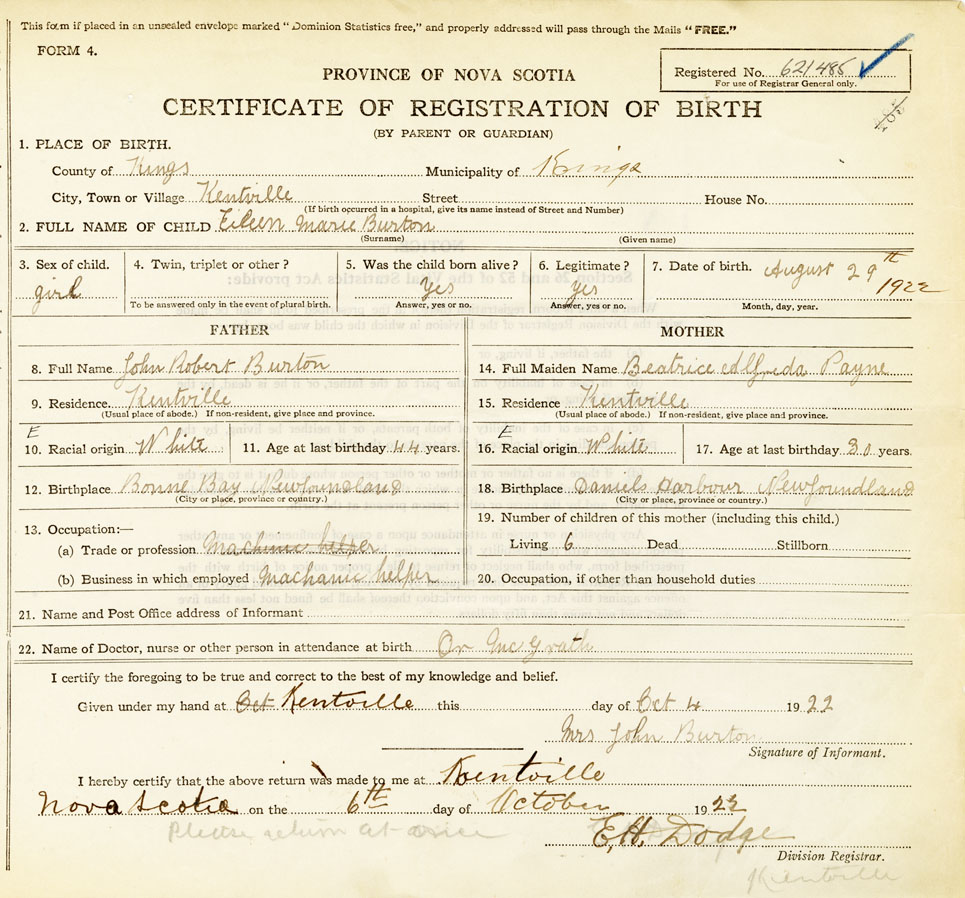 This form if placed in an unsealed envelope marked "Dominion Statistics free," and properly addressed will pass through the Mails "FREE."
FORM 4.
Registered No. 621485
For use of Registrar General only.
PROVINCE OF NOVA SCOTIA
CERTIFICATE OF REGISTRATION OF BIRTH
(BY PARENT OR GUARDIAN)
1. PLACE OF BIRTH.
County of Kings Municipality of Kings
City, Town or Village Kentville Street House No.
(If birth occurred in a hospital, give its name instead of Street and Number)
2. FULL NAME OF CHILD Eileen Marie Burton
(Surname) (Given name)
3. Sex of child. 4. Twin, triplet or other? 5. Was the child born alive? 6. Legitimate? 7. Date of birth. August 29th
girl Yes yes 1922
To be answered only in the event of plural birth. Answer, yes or no. Answer, yes or no. Month, day, year.
FATHER
8. Full Name John Robert Burton
9. Residence Kentville
(Usual place of abode.) If non-resident, give place and province.
E
10. Racial origin White 11. Age at last birthday 44 years.
12. Birthplace Bonne Bay Newfoundland
(City or place, province or country.)
13. Occupation:—
(a) Trade or profession Machinic helper
(b) Business in which employed Machanic helper
MOTHER
14. Full Maiden Name Beatrice Alfreda Payne
15. Residence Kentville
(Usual place of abode.) If non-resident, give place and province.
E
16. Racial origin White 17. Age at last birthday 30 years.
18. Birthplace Daniels Harbour Newfoundland
(City or place, province or country.)
19. Number of children of this mother (including this child.)
Living 6 Dead Stillborn
20. Occupation, if other than household duties
21. Name and Post Office address of Informant
22. Name of Doctor, nurse or other person in attendance at birth Dr McGrath
I certify the foregoing to be true and correct to the best of my knowledge and belief.
Given under my hand at Oct Kentville this day of Oct 4 1922
Mrs John Burton
Signature of Informant.
I hereby certify that the above return was made to me at Kentville
Nova Scotia on the 6th day of October 1922
Please return at once
E. H. Dodge
Division Registrar.
Kentville